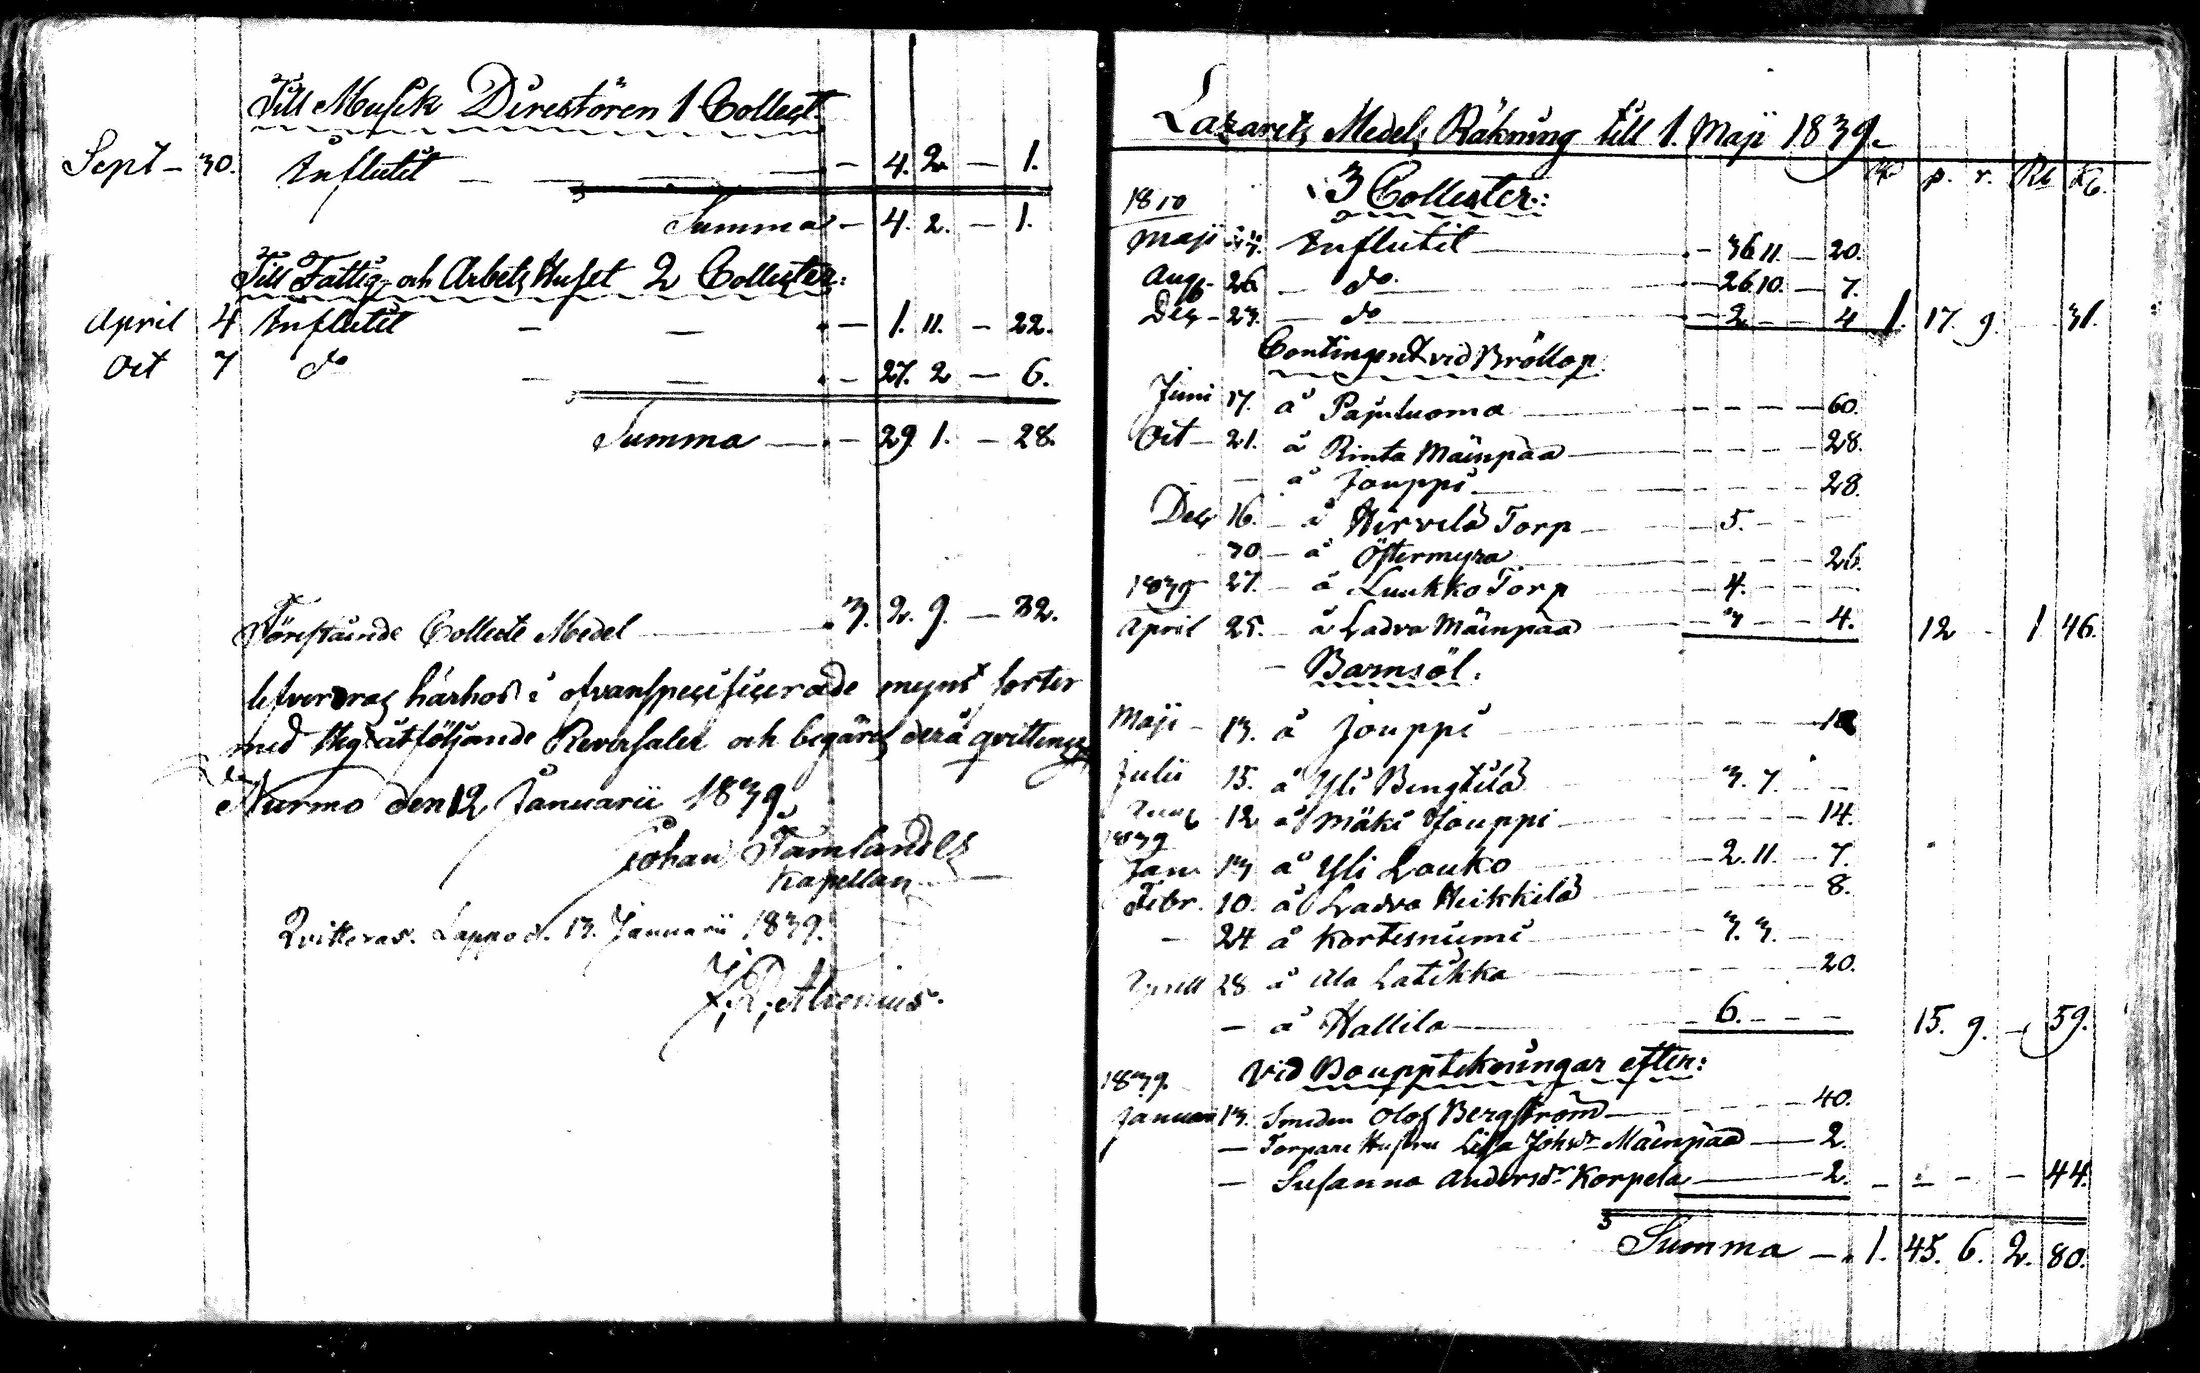 Till Musik Directören 1 Collect.
Sept - 30. Influtit - - - - - 4. 2. - 1.
Summa - 4. 2. - 1.
Till Fattig- och Arbets Huset 2 Collecter:
April 4 Influtit - - - - 1. 11. - 22.
Oct 7 do - - - - 27. 2 - 6.
Summa - - 29 1. - 28.
Förestående Collecte Medel - 3. 2. 9. - 32.
lefvereras härhos i ofvanspecificerade mynt sorter
med åtföljande Reversaler och begäres derå qvittens
Nurmo den 12 Januarii 1839.
Johan
Kapellan
Qvitteras. Lappo d. 13. Januarii 1839.
Lazarets Medels Räkning till 1. Maji 1839.
p. r. Rb K.
3 Collecter:
Maji Influtit - 36 11. - 20.
Aug 26 - do - 26 10. - 7.
Dec - 23. - do - 2 - - 4 1. 17. 9. - 31.
Contingent vid Bröllop.
Juni 17. å Pajuluoma - - - - 60.
Oct - 21. å Rinta Mäenpää - - - - 28.
- å Jouppi - - - - 28.
Dec 16. - å Hirvelä Torp - 5. - - -
30 - å Östermyra - - - - 26.
1839 27. - å Luukko Torp - 4. - - -
April 25. - å Ladva Mäenpää - 3 - - 4. 12 - 1 46.
- Barnsöl.
Maji - 13. å Jouppi - - - -
Julii 15. å Yli Bengtilä 3. 7. - -
Aug 12 å Mäki Jouppi - - - - 14.
1839
Jan 13 å Yli Louko - 2. 11. - 7.
Febr. 10. å Ladva Heikkilä - - - 8.
- 24 å Kortesniemi - 3. 3. -
Aprill 28 å Ala Latikka - - - 20.
- å Hallila - 6. - - - 15. 9. - 59.
1839. Vid Bouppteckningar efter:
Januari 13. Smeden Olof Bergström - - - 40.
- Torpare Hustru Lisa Johsdr Mäenpää - 2.
- Susanna Andersdr Korpela - 2. - - - - 44.
Summa - 1. 45. 6. 2. 80.